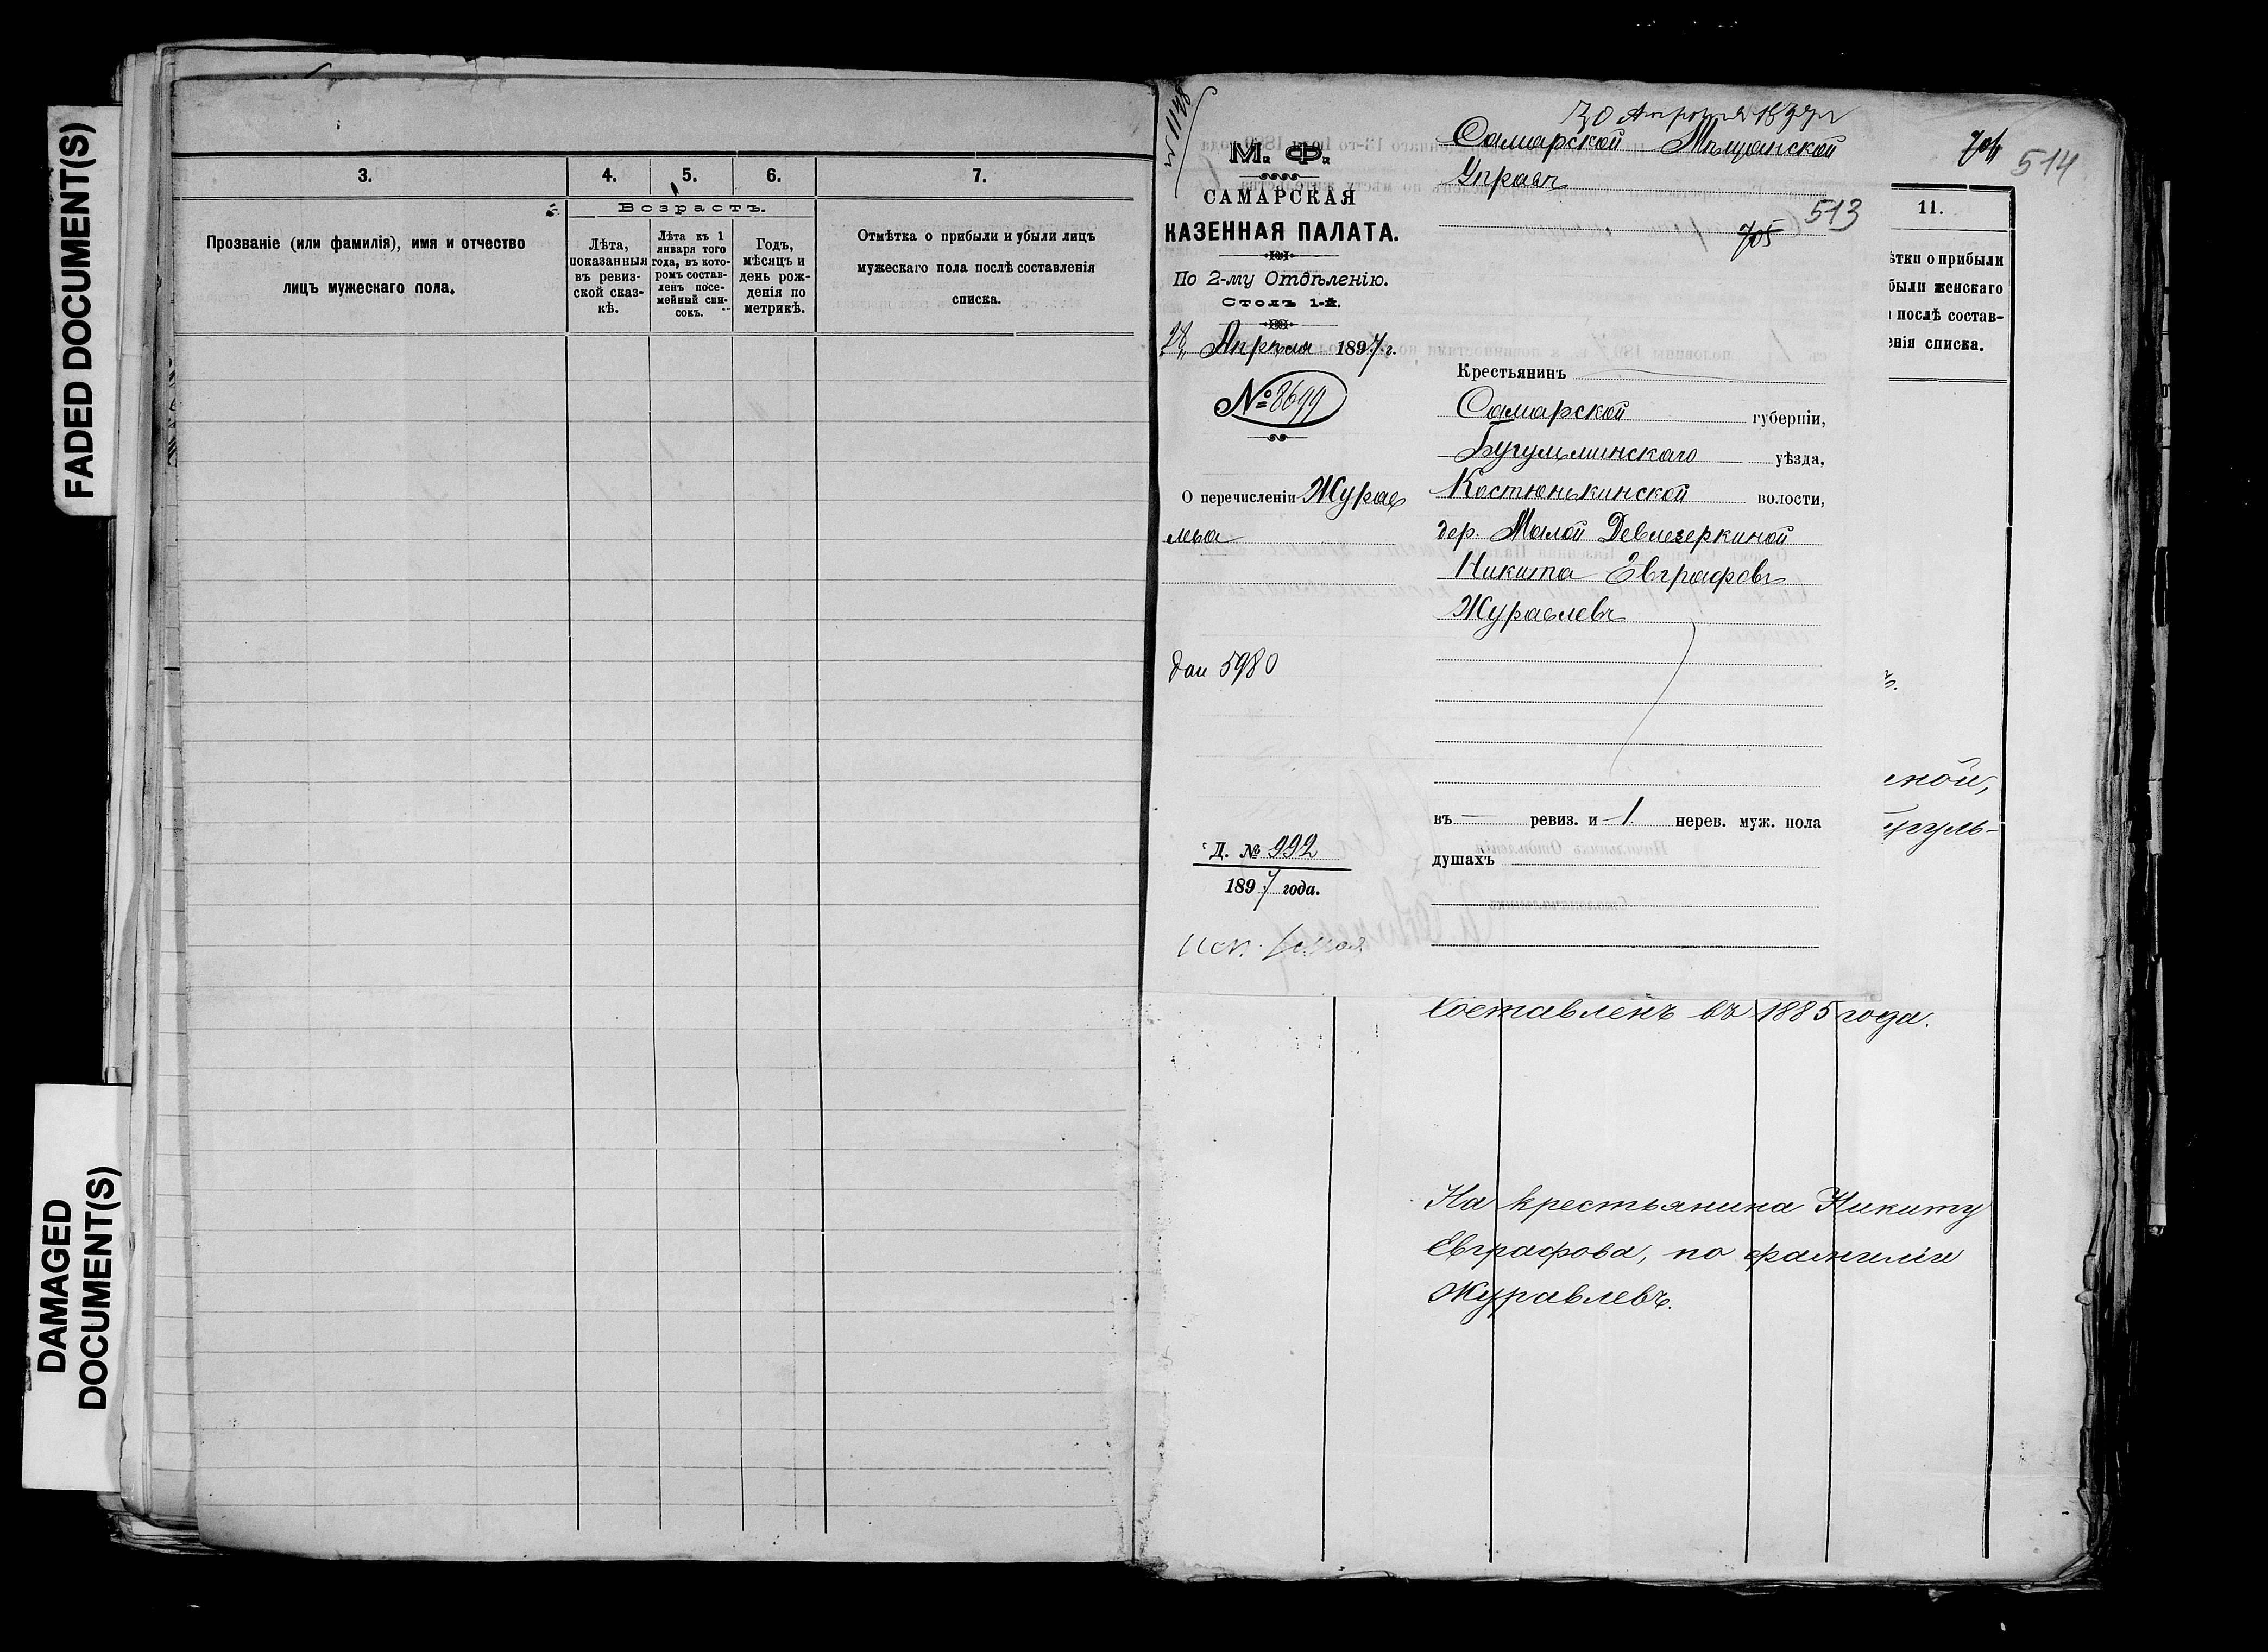 FADED DOCUMENT(S)
DAMAGED
DOCUMENT(S)
3.
4.
5.
6.
7.
Возрастъ.
Прозваніе (или фамилія), имя и отчество
лицъ мужескаго пола.
Лѣта,
показанныя
въ ревиз-
ской сказ-
кѣ.
Лѣта къ 1
января того
года, въ кото-
ромъ состав-
ленъ посе-
мейный спи-
сокъ.
Годъ,
мѣсяцъ и
день рож-
денія по
метрикѣ.
Отмѣтка о прибыли и убыли лицъ
мужескаго пола послѣ составленія
списка.
М. Ф.
САМАРСКАЯ
КАЗЕННАЯ ПАЛАТА.
По 2-му Отдѣленію.
Столъ 1-й.
28 Апрѣля 1897 г.
№ 8699
О перечисленіи Журав
лева
5980
Д. № 992
1897 года.
30 Апрѣля 1897 г
Самарской Мѣщанской
Управѣ
513
705
Крестьянинъ
Самарской губерніи,
Бугульминскаго уѣзда,
Костюнькинской волости,
дер. Малой Девлезеркиной
Никита Евграфовъ
Журавлевъ
въ — ревиз. и 1 нерев. муж. пола
душахъ
514
11.
ѣтки о прибыли
были женскаго
послѣ состав-
енія списка.
ъ.
ной,
гуль-
составленъ въ 1885 года.
На крестьянина Никиту
Евграфова, по фамиліи
Журавлевъ.